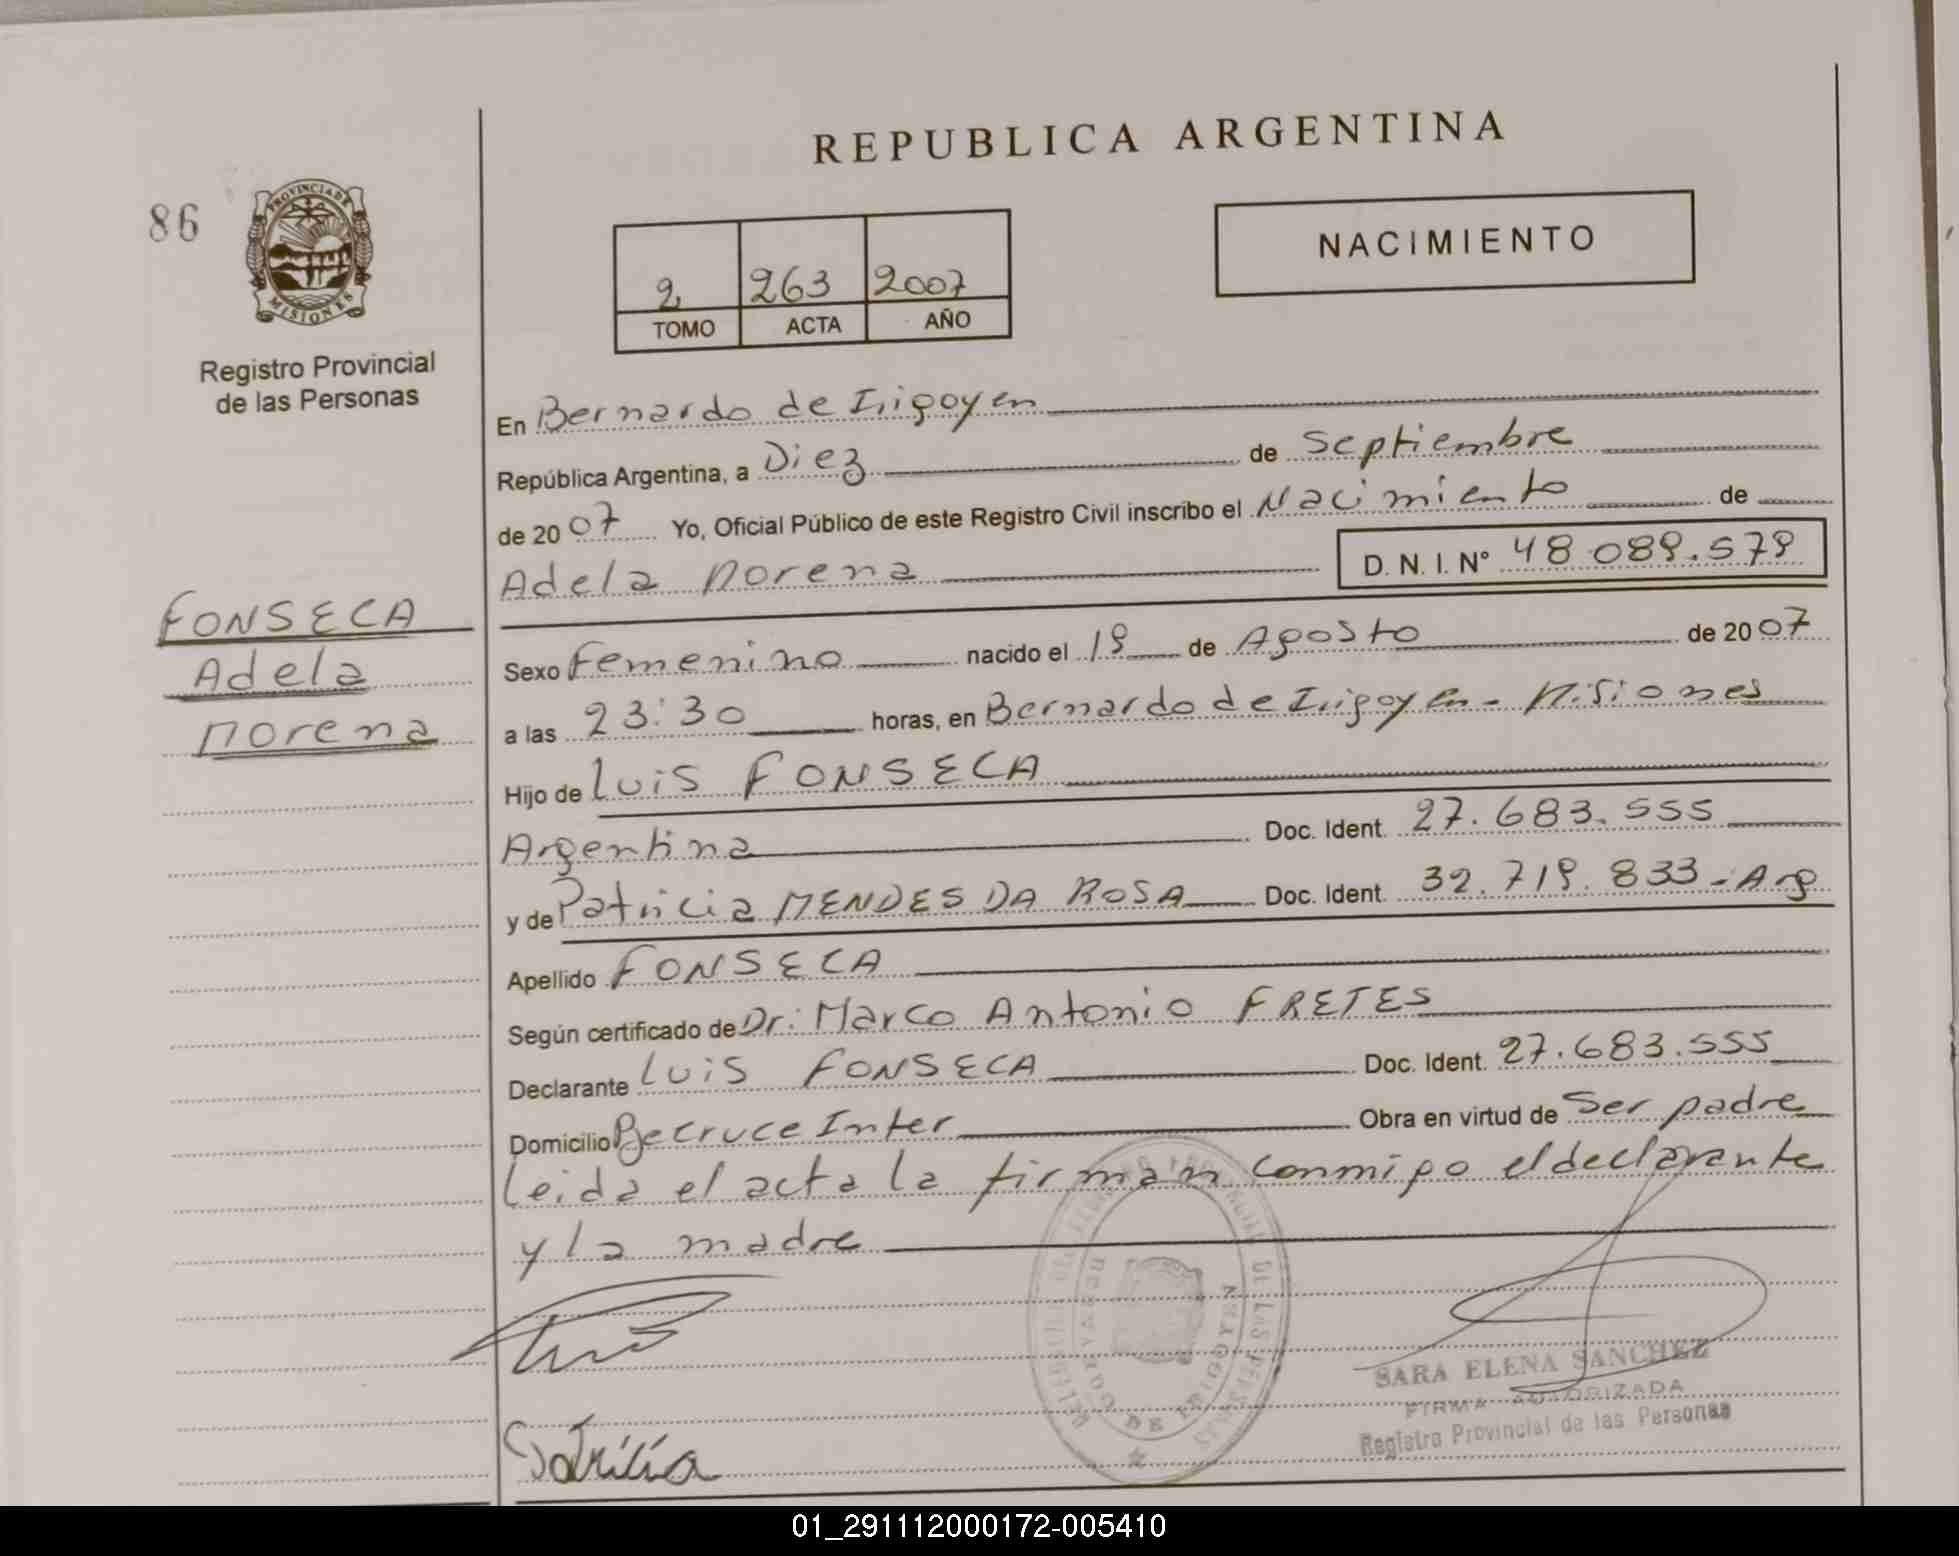 REPUBLICA ARGENTINA
86
PROVINCIA DE
MISIONES
Registro Provincial
de las Personas
2 263 2007
TOMO ACTA AÑO
NACIMIENTO
En Bernardo de Irigoyen
República Argentina, a Diez de Septiembre
de 2007 Yo, Oficial Público de este Registro Civil inscribo el Nacimiento de
Adela Morena D. N. I. Nº 48.089.579
FONSECA
Adela
Morena
Sexo Femenino nacido el 19 de Agosto de 2007
a las 23:30 horas, en Bernardo de Irigoyen - Misiones
Hijo de Luis FONSECA
Argentina Doc. Ident. 27.683.555
y de Patricia MENDES DA ROSA Doc. Ident. 32.719.833-Arg
Apellido FONSECA
Según certificado de Dr: Marco Antonio FRETES
Declarante Luis FONSECA Doc. Ident. 27.683.555
Domicilio Becruce Inter Obra en virtud de Ser padre
Leida el acta la firman conmigo el declarante
y la madre
SARA ELENA SANCHEZ
FIRMA AUTORIZADA
Registro Provincial de las Personas
01_291112000172-005410